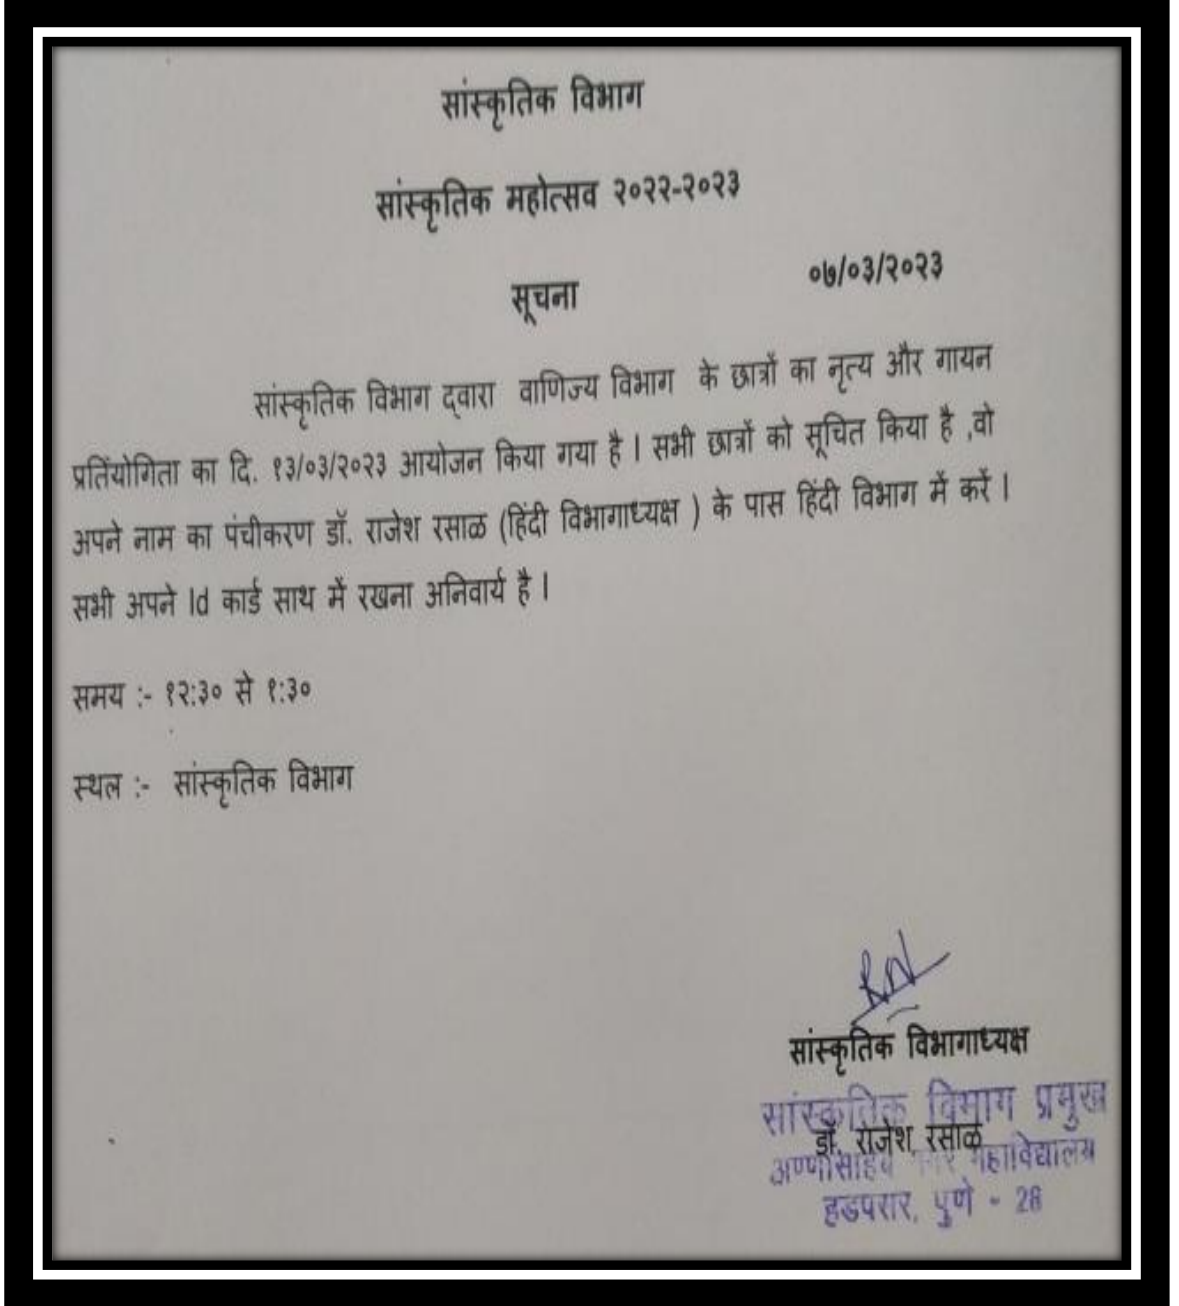 सांस्कृतिक विभाग
सांस्कृतिक महोत्सव २०२२-२०२३
०७/०३/२०२३
सूचना
सांस्कृतिक विभाग द्वारा वाणिज्य विभाग के छात्रों का नृत्य और गायन
प्रतियोगिता का दि. १३/०३/२०२३ आयोजन किया गया है । सभी छात्रों को सूचित किया है ,वो
अपने नाम का पंचीकरण डॉ. राजेश रसाळ (हिंदी विभागाध्यक्ष ) के पास हिंदी विभाग में करें ।
सभी अपने Id कार्ड साथ में रखना अनिवार्य है ।
समय :- १२:३० से १:३०
स्थल :- सांस्कृतिक विभाग
सांस्कृतिक विभागाध्यक्ष
सांस्कृतिक विभाग प्रमुख
डॉ. राजेश रसाळ
अण्णासाहेब महाविद्यालय
हडपसर, पुणे - 28